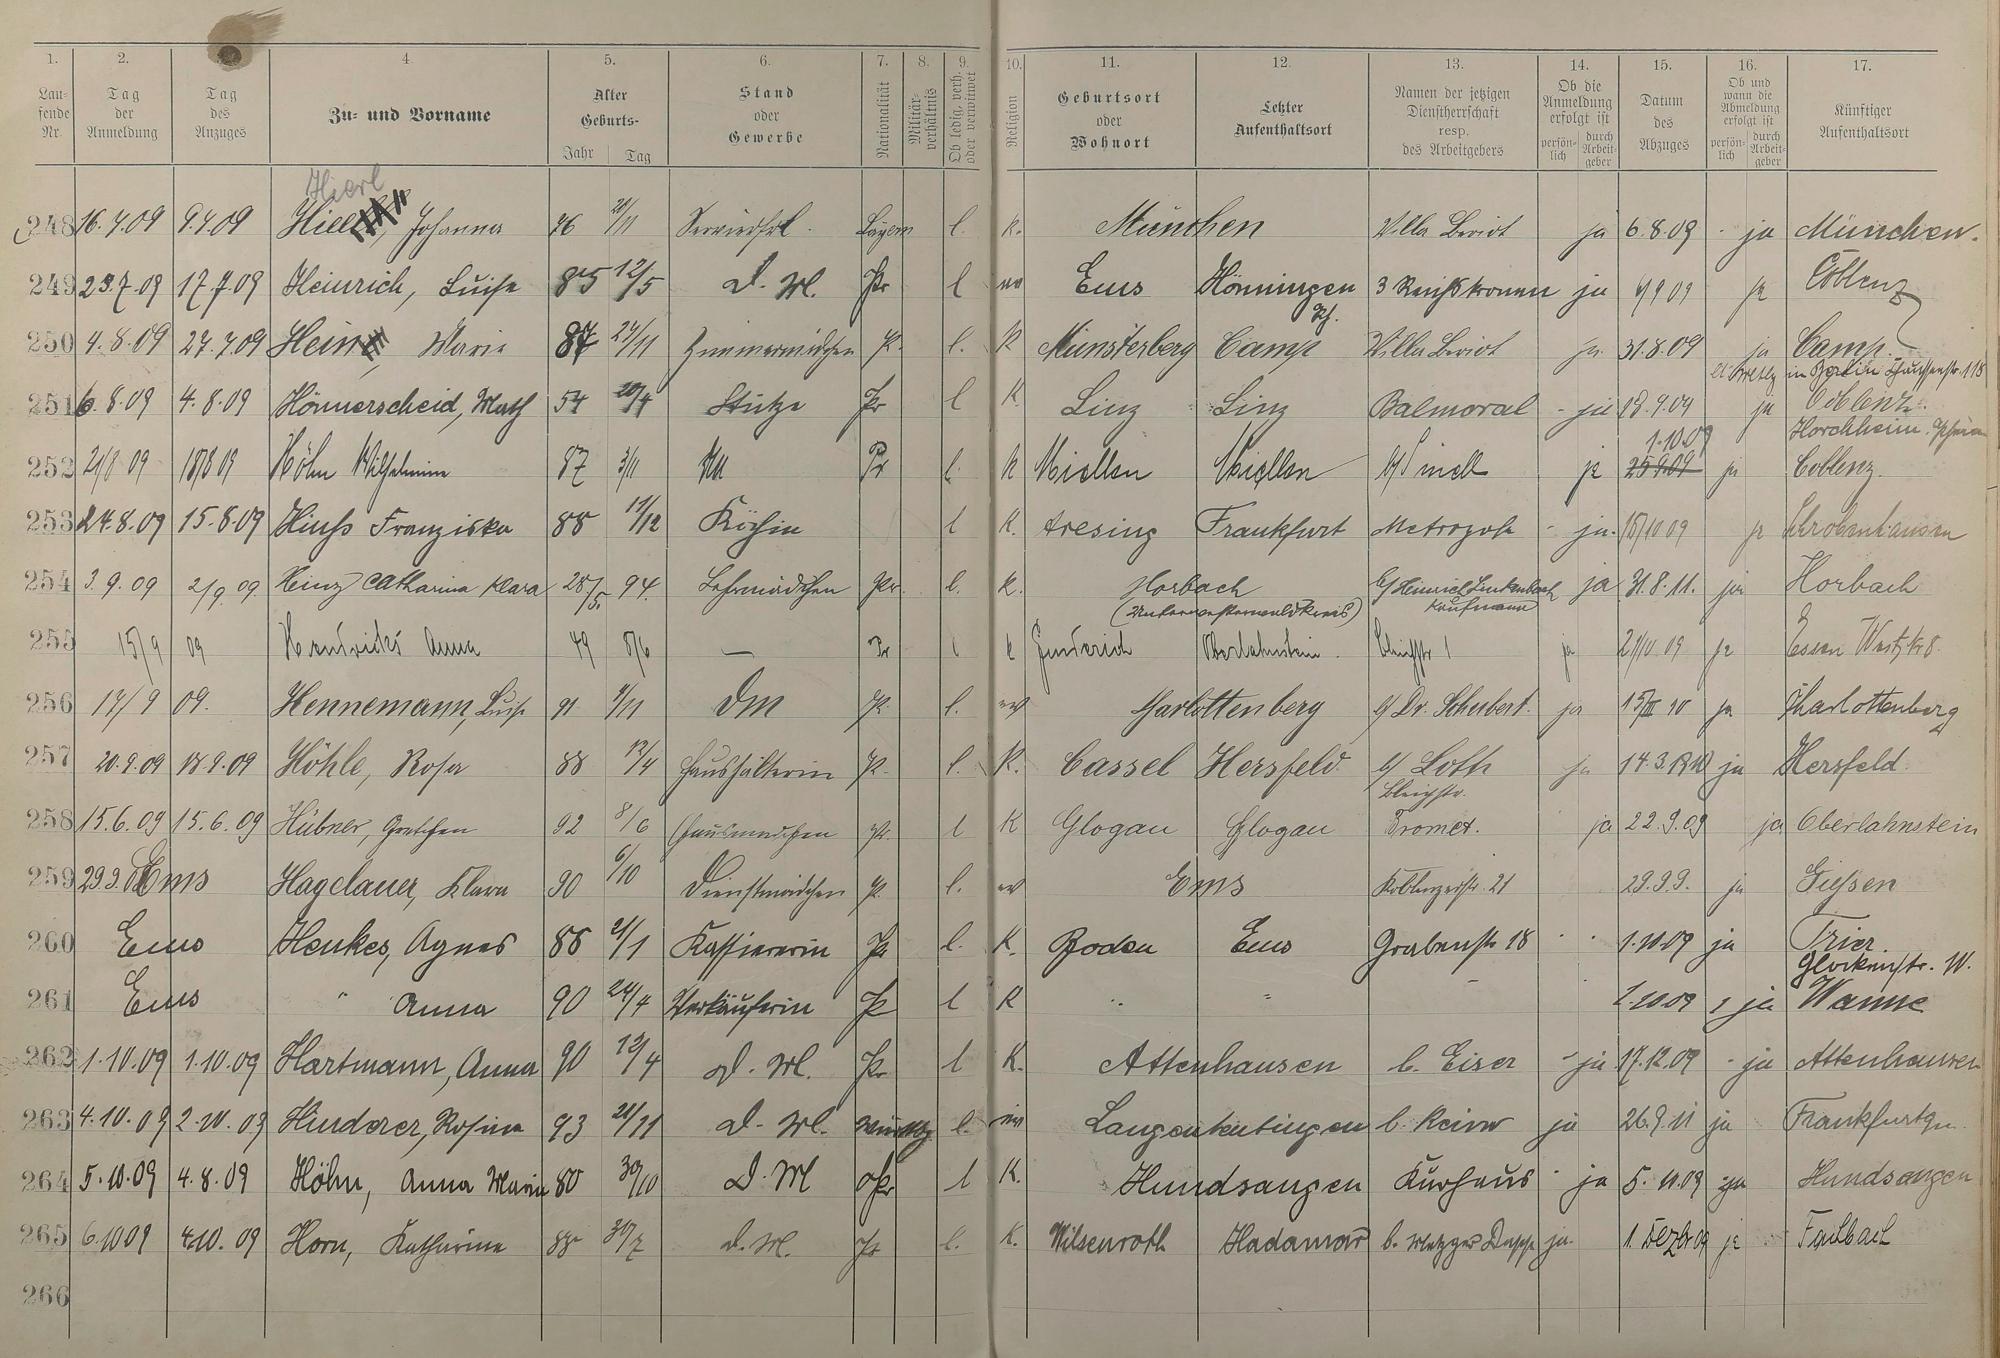 1. 2. 3. 4. 5. 6. 7. 8. 9. 10. 11. 12. 13. 14. 15. 16. 17.
Lau-fende Nr. Tag der Anmeldung Tag des Anzuges Zu- und Vorname Alter Geburts- Jahr Tag Stand oder Gewerbe Nationalität Militär-verhältnis Ob ledig, verh. oder verwitwet Religion Geburtsort oder Wohnort Letzter Aufenthaltsort Namen der jetzigen Dienstherrschaft resp. des Arbeitgebers Ob die Anmeldung erfolgt ist persön-lich durch Arbeit-geber Datum des Abzuges Ob und wann die Abmeldung erfolgt ist persön-lich durch Arbeit-geber Künftiger Aufenthaltsort
Hierl
248 16.7.09 9.7.09 Johanna 76 Servierfrl. Bayern l. K. München Villa Beriot ja 6.8.09 - ja München.
249 23.7.09 17.7.09 Heinrich, Luise 85 12/5 D. M. Pr l ev Ems Hönningen Rh. 3 Reichskronen ja 4/9 09 ja Coblenz
250 4.8.09 27.7.09 Hein, Marie 87 24/11 Zimmermädchen Pr. l. K Münsterberg Camp Villa Beriot ja 31.8.09 ja Camp.
in Berlin 118
251 6.8.09 4.8.09 Hönnerscheid, Math 54 20/4 Stütze Pr l K Linz Linz Balmoral - ja 18.9.09 ja Coblenz.
1.10.09 Horchheim
252 21/8 09 18/8 09 Höhn Wilhelmine 87 3/11 Pr l. K Miellen Miellen ja 25.9.09 ja Coblenz.
253 24.8.09 15.8.09 Franziska 88 11/12 Köchin l K. Aresing Frankfurt Metropole - ja. 15/10 09 ja Schrobenhausen
254 3.9.09 2/9.09 Hinz Catharina Klara 28/5 94. Lehrmädchen Pr. l. K. Horbach b/ Heinrich Linkenbach ja 31.8.11. ja Horbach
(Unterwesterwaldkreis) Kaufmann
255 15/9 09 Hendricks Anna 49 8/6 — Pr l k Ginderich Oberlahnstein. Bleichstr 1 ja 21/10 09 ja Essen
256 17/9 09. Hennemann, Luise 91 4/11 DM Pr. l. ev Charlottenberg b/ Dr. Schubert. ja 15/III 10 ja Charlottenberg
257 20.9.09 18.9.09 Höhle, Rosa 88 12/4 Haushälterin Pr. l. K. Cassel Hersfeld b/ Loth ja 14.3.1910 ja Hersfeld.
Bleichstr.
258 15.6.09 15.6.09 Hübner, Gretchen 92 8/6 Hausmädchen Pr. l K Glogau Glogau Bromet. ja 22.9.09 ja Oberlahnstein
259 29.9. Ems Hagelauer, Klara 90 6/10 Dienstmädchen Pr. l. ev Ems Koblenzerstr. 21 29.9.9. ja Giessen
260 Ems Henkes, Agnes 88 21/1 Kassiererin Pr l. K. Boden Ems Grabenstr 18 - - 1.10.09 ja Trier.
Glockenstr. 10.
261 Ems " Anna 90 24/4 Verkäuferin Pr l K " " - 1.10.09 ja Wanne
262 1.10.09 1.10.09 Hartmann, Anna 90 12/4 D. M. Pr l K. Attenhausen b. Eiser - ja 17.12.09 - ja Attenhausen
263 4.10.09 2.10.09 Hinderer, Rosine 93 21/11 D. M. Württbg l. ev b. ja 26.9.11 ja
264 5.10.09 4.8.09 Höhn, Anna Maria 80 30/10 D. M Pr l K. Hundsangen Kurhaus - ja 5.10.09 ja Hundsangen
265 6.10 09 4.10.09 Horn, Katharina 88 30/7 D. M. Pr l. K. Wilsenroth Hadamar b. Metzger ja. 1. Dezbr 09 ja Fachbach
266